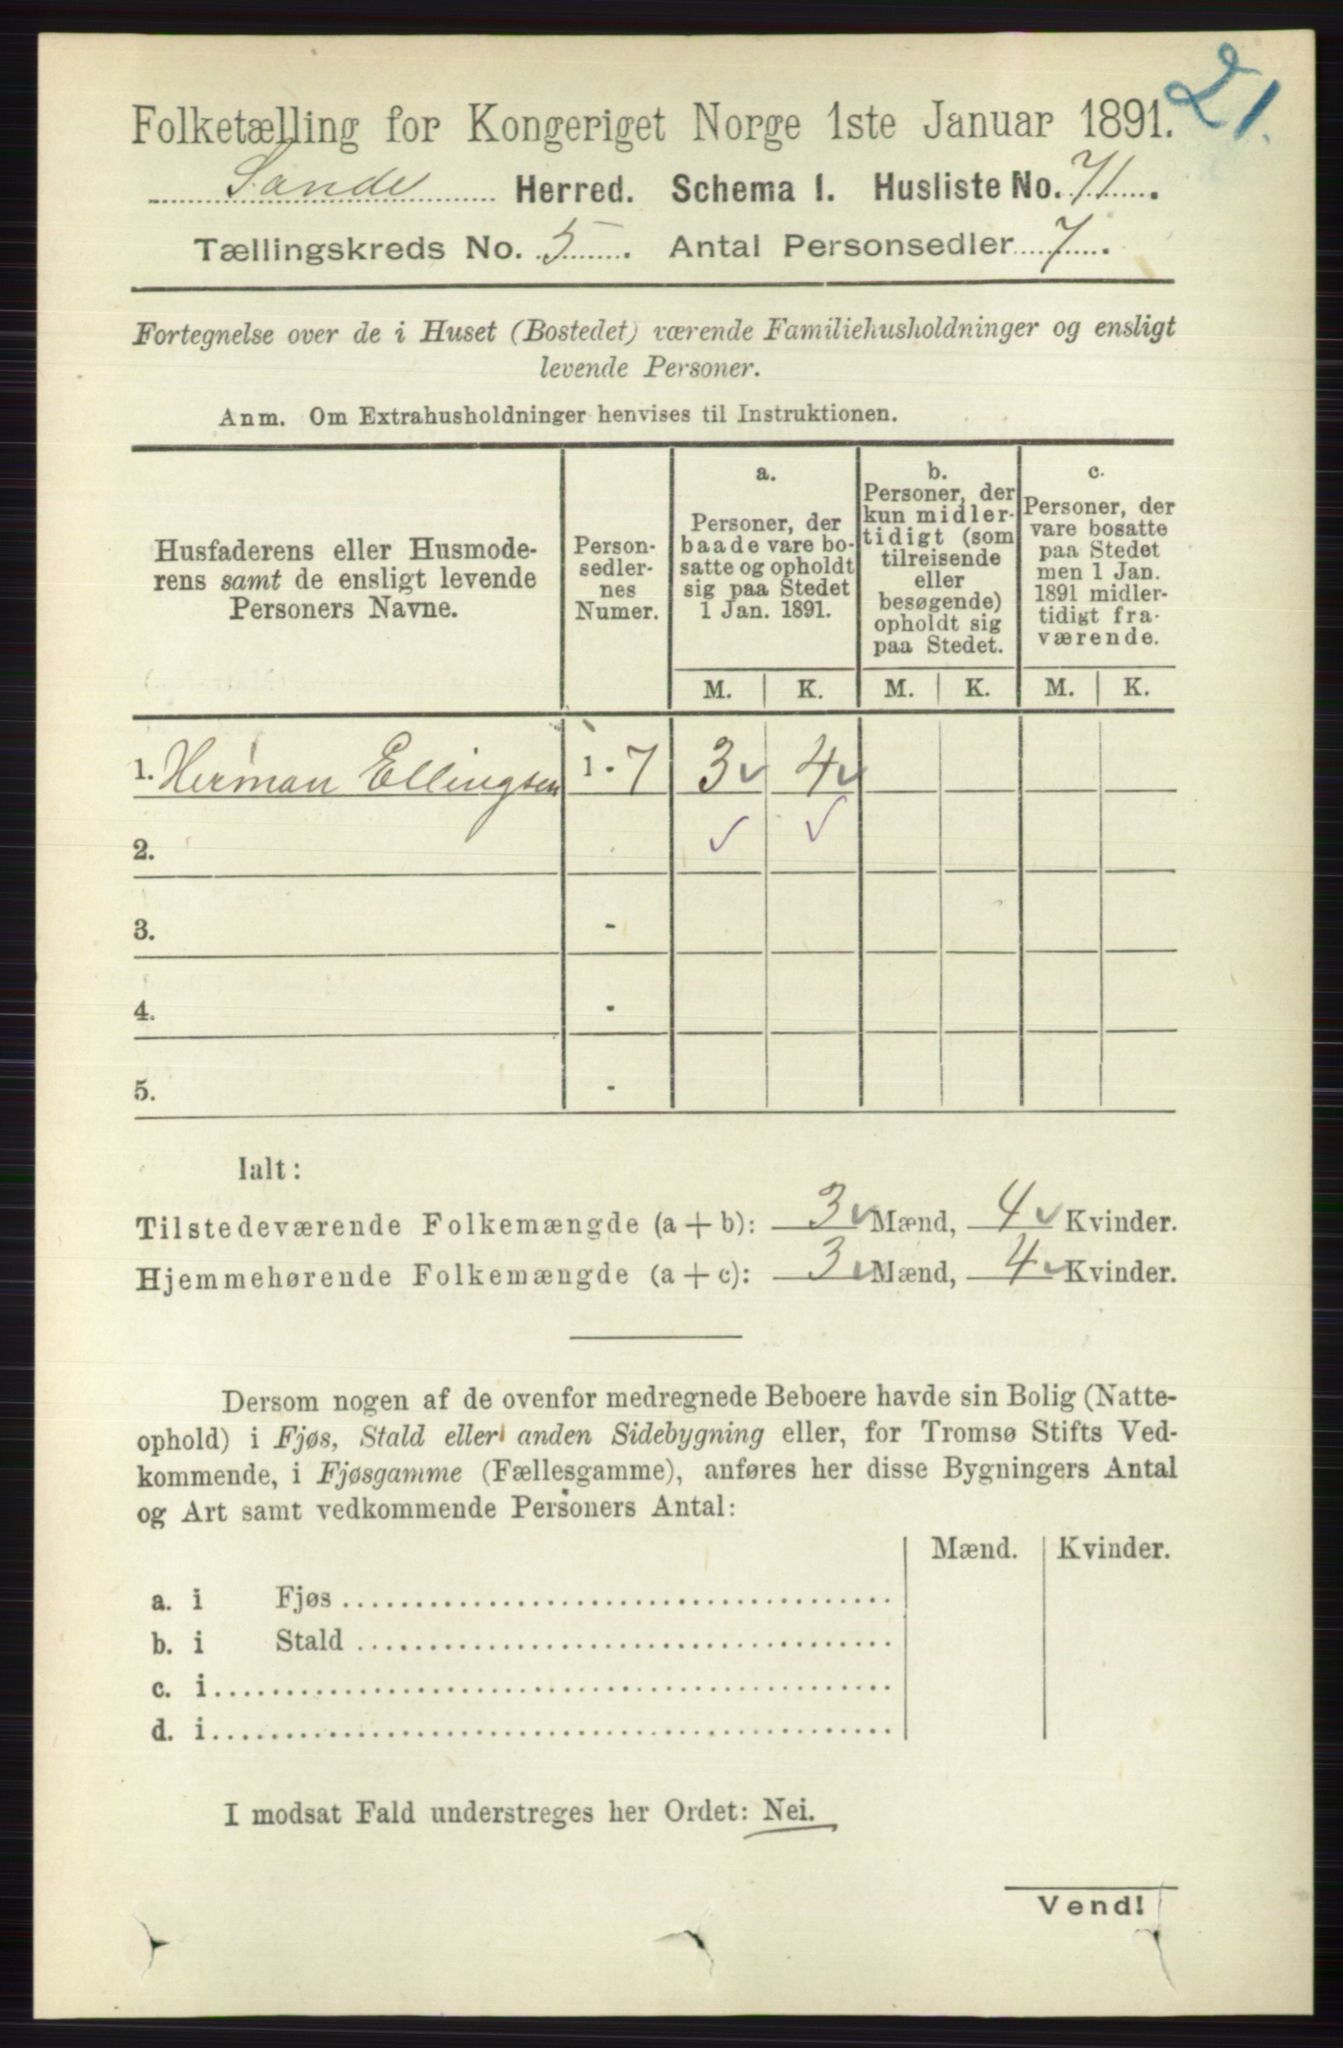 21.
Folketælling for Kongeriget Norge 1ste Januar 1891.
Sande Herred. Schema 1. Husliste No. 71.
Tællingskreds No. 5. Antal Personsedler 7.
Fortegnelse over de i Huset (Bostedet) værende Familiehusholdninger og ensligt
levende Personer.
Anm. Om Extrahusholdninger henvises til Instruktionen.
Husfaderens eller Husmode-
rens samt de ensligt levende
Personers Navne.
Person-
sedler-
nes
Numer.
a.
Personer, der
baade vare bo-
satte og opholdt
sig paa Stedet
1 Jan. 1891.
b.
Personer, der
kun midler-
tidigt (som
tilreisende
eller
besøgende)
opholdt sig
paa Stedet.
c.
Personer, der
vare bosatte
paa Stedet
men 1 Jan.
1891 midler-
tidigt fra-
værende.
M. K. M. K. M. K.
1. Herman Ellingsen 1 - 7 3 ✓ 4 ✓
2. ✓ ✓
3. -
4. -
5. -
Ialt:
Tilstedeværende Folkemængde (a + b): 3 ✓ Mænd, 4 ✓ Kvinder.
Hjemmehørende Folkemængde (a + c): 3 ✓ Mænd, 4 ✓ Kvinder.
Dersom nogen af de ovenfor medregnede Beboere havde sin Bolig (Natte-
ophold) i Fjøs, Stald eller anden Sidebygning eller, for Tromsø Stifts Ved-
kommende, i Fjøsgamme (Fællesgamme), anføres her disse Bygningers Antal
og Art samt vedkommende Personers Antal:
Mænd. Kvinder.
a. i Fjøs
b. i Stald
c. i
d. i
I modsat Fald understreges her Ordet: Nei.
Vend!